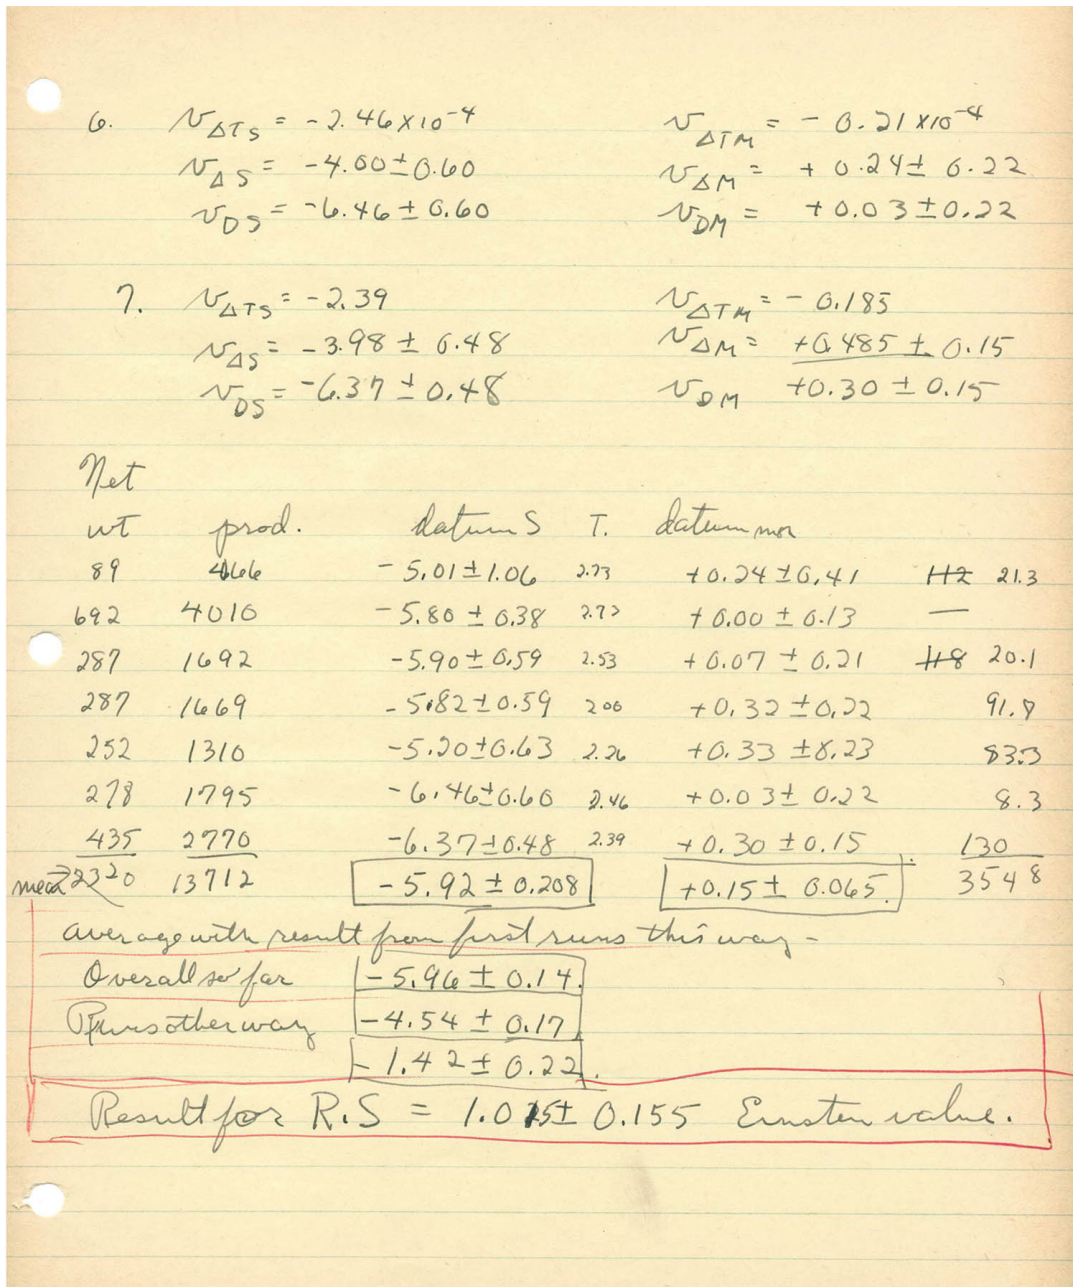 6. vΔTS = -2.46X10⁻⁴ vΔTM = -0.21 X10⁻⁴
vΔS = -4.00±0.60 vΔM = +0.24± 0.22
vDS = -6.46 ± 0.60 vDM = +0.03±0.22
7. vΔTS = -2.39 vΔTM = -0.185
vΔS = -3.98 ± 0.48 vΔM = +0.485 ± 0.15
vDS = -6.37 ± 0.48 vDM +0.30 ± 0.15
Net
wt prod. datum S T. datum mon
89 466 -5.01±1.06 2.73 +0.24±0.41 112 21.3
692 4010 -5.80 ± 0.38 2.72 +0.00 ± 0.13 —
287 1692 -5.90± 0.59 2.53 +0.07 ± 0.21 118 20.1
287 1669 -5.82±0.59 2.00 +0.32 ±0.22 91.8
252 1310 -5.20±0.63 2.26 +0.33 ±0.23 83.3
278 1795 -6.46±0.60 2.46 +0.03± 0.22 8.3
435 2770 -6.37±0.48 2.39 +0.30 ± 0.15 130
mean 2320 13712 -5.92 ± 0.208 +0.15± 0.065 354 8
average with result from first runs this way -
Overall so far -5.96 ± 0.14
Runs other way -4.54 ± 0.17
-1.42± 0.22
Result for R.S = 1.015± 0.155 Einstein value.